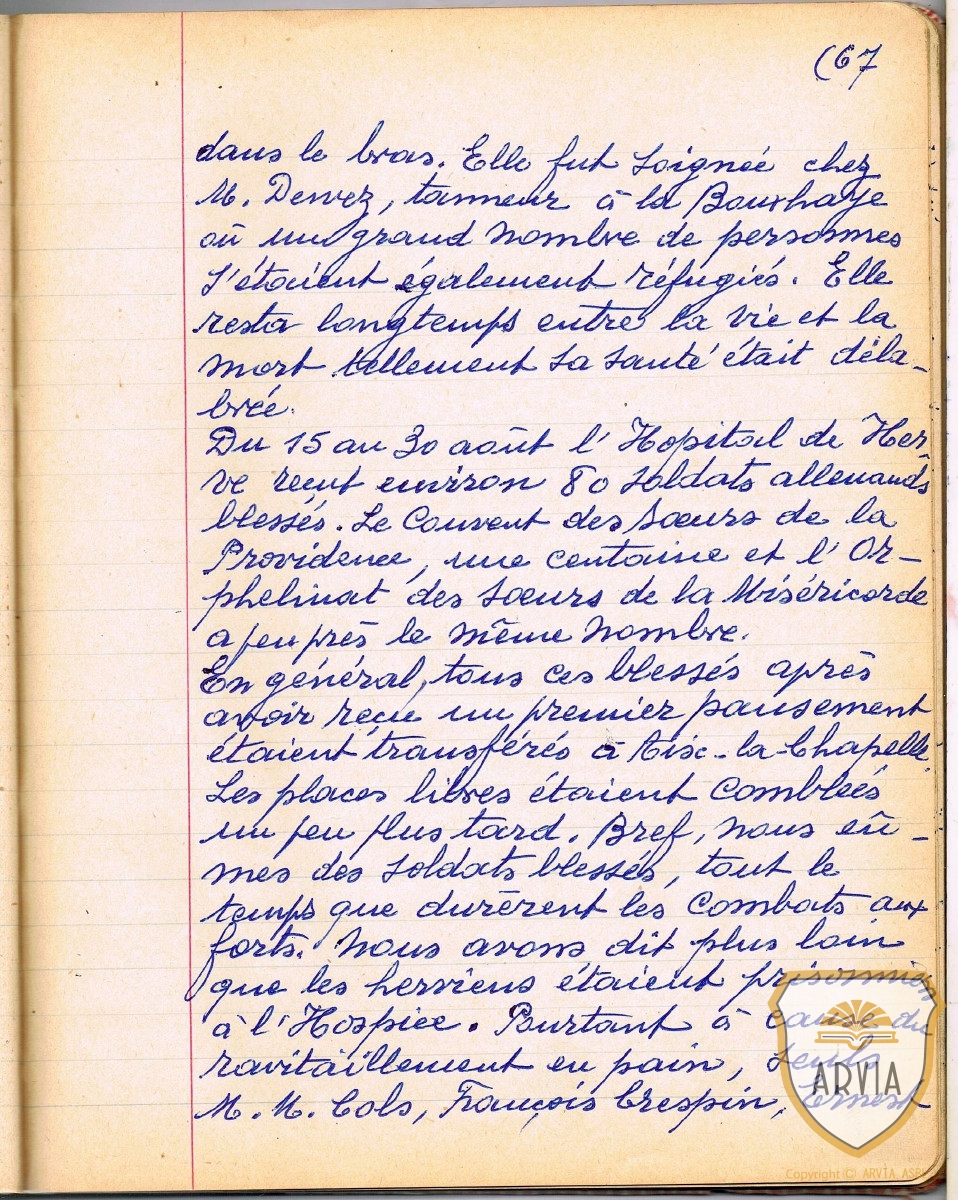 (67
dans le bras. Elle fut soignée chez
M. Dewez, tanneur à la Bouxhaye
où un grand nombre de personnes
s'étaient également réfugiés. Elle
resta longtemps entre la vie et la
mort tellement sa santé était déla-
brée.
Du 15 au 30 août l'Hopital de Her-
ve reçut environ 80 soldats allemands
blessés. Le Couvent des Sœurs de la
Providence, une centaine et l'Or-
phelinat des Sœurs de la Miséricorde
a peu près le même nombre.
En général, tous ces blessés après
avoir reçu un premier pansement
étaient transférés à Aix-la-Chapelle.
Les places libres étaient comblées
un peu plus tard. Bref, nous eû-
mes des soldats blessés, tout le
temps que durèrent les combats aux
forts. Nous avons dit plus loin
que les herviens étaient prisonniers
à l'Hospice. Pourtant à cause du
ravitaillement en pain, seuls
M.M. Cols, François Crespin, Ernest
ARVIA
Copyright (C) ARVIA ASBL